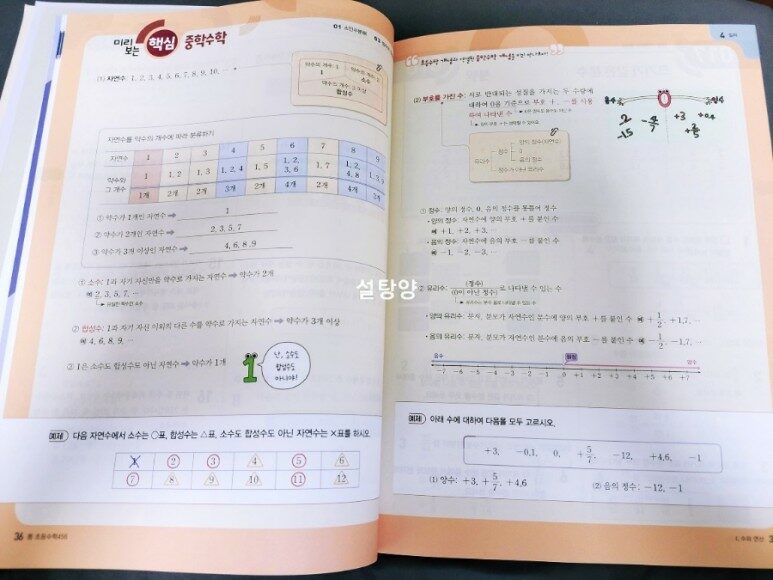 미리
보는
핵심
중학수학
01 소인수분해
(1) 자연수: 1, 2, 3, 4, 5, 6, 7, 8, 9, 10, …
약수의 개수: 1
1
소수
합성수
자연수를 약수의 개수에 따라 분류하기
자연수 1 2 3 4 5 6 7 8 9
약수와 1 1, 2 1, 3 1, 2, 4 1, 5 1, 2, 3, 6 1, 7 1, 2, 4, 8 1, 3, 9
그 개수 1개 2개 2개 3개 2개 4개 2개 4개 3개
① 약수가 1개인 자연수 ➡ 1
② 약수가 2개인 자연수 ➡ 2, 3, 5, 7
③ 약수가 3개 이상인 자연수 ➡ 4, 6, 8, 9
① 소수: 1과 자기 자신만을 약수로 가지는 자연수 ➡ 약수가 2개
예 2, 3, 5, 7, …
② 합성수: 1과 자기 자신 이외의 다른 수를 약수로 가지는 자연수 ➡ 약수가 3개 이상
예 4, 6, 8, 9, …
③ 1은 소수도 합성수도 아닌 자연수 ➡ 약수가 1개
난, 소수도
합성수도
아니야!
예제 다음 자연수에서 소수는 ○표, 합성수는 △표, 소수도 합성수도 아닌 자연수는 ×표를 하시오.
1 2 3 4 5 6
7 8 9 10 11 12
36
초등수학
설탕양
4
(2) 부호를 가진 수: 서로 반대되는 성질을 가지는 두 수량에
대하여 0을 기준으로 부호 +, -를 사용
하여 나타낸 수
유리수
정수
양의 정수(자연수)
0
음의 정수
정수가 아닌 유리수
0
+3
① 정수: 양의 정수, 0, 음의 정수를 통틀어 정수
• 양의 정수: 자연수에 양의 부호 +를 붙인 수
예 +1, +2, +3, …
• 음의 정수: 자연수에 음의 부호 -를 붙인 수
예 -1, -2, -3, …
② 유리수: (정수)/(0이 아닌 정수)로 나타낼 수 있는 수
• 양의 유리수: 분자, 분모가 자연수인 분수에 양의 부호 +를 붙인 수 예 +1/2, +1.7, …
• 음의 유리수: 분자, 분모가 자연수인 분수에 음의 부호 -를 붙인 수 예 -1/2, -1.7, …
음수 원점 양수
-7 -6 -5 -4 -3 -2 -1 0 +1 +2 +3 +4 +5 +6 +7
예제 아래 수에 대하여 다음을 모두 고르시오.
+3, -0.1, 0, +5/7, -12, +4.6, -1
(1) 양수: +3, +5/7, +4.6 (2) 음의 정수: -12, -1
I. 수와 연산